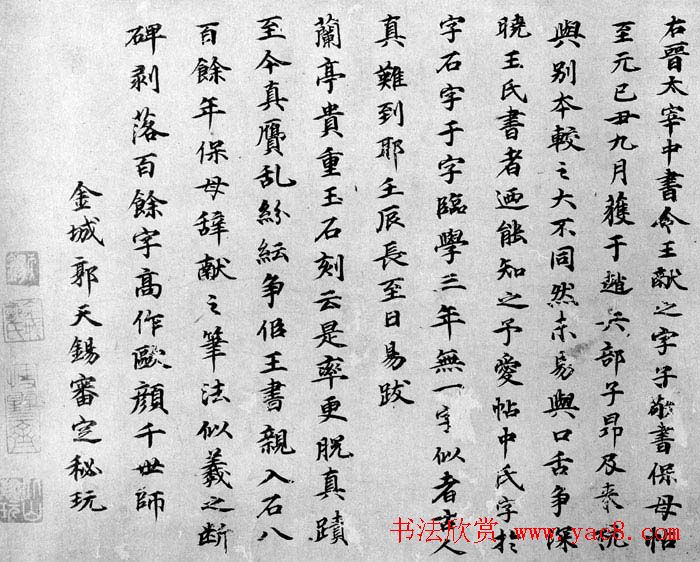 右晉太宰中書令王献之字子敬書保母帖
至元己丑九月獲于趙兵部子昂及来杭
與别本較之大不同然未易與口舌争深
曉王氏書者迺能知之予愛帖中氏字於
字石字于字臨學三年無一字似者古人
真難到耶壬辰長至日易跋
蘭亭貴重玉石刻云是率更脱真蹟
至今真贋乱紛紜争似王書親入石八
百餘年保母辞献之筆法似羲之断
碑剥落百餘字高作歐顔千世師
金城郭天錫審定秘玩
书法欣赏 www.yac8.com